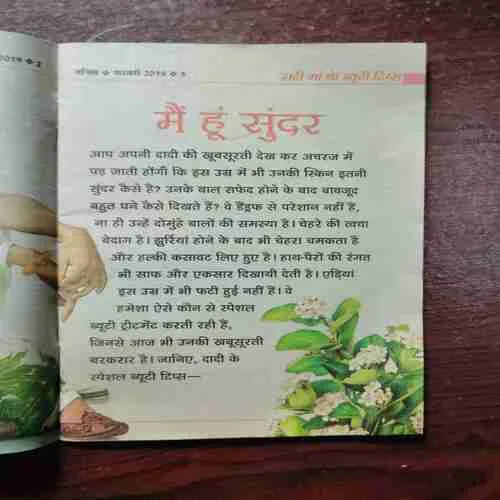 2019 ❖ 2
वनिता ❖ फरवरी 2019 ❖ 3
दादी मां के ब्यूटी टिप्स
मैं हूं सुंदर
आप अपनी दादी की खूबसूरती देख कर अचरज में
पड़ जाती होंगी कि इस उम्र में भी उनकी स्किन इतनी
सुंदर कैसे है? उनके बाल सफेद होने के बाद बावजूद
बहुत घने कैसे दिखते हैं? वे डैंड्रफ से परेशान नहीं हैं,
ना ही उन्हें दोमुंहे बालों की समस्या है। चेहरे की त्वचा
बेदाग है। झुर्रियां होने के बाद भी चेहरा चमकता है
और हल्की कसावट लिए हुए है। हाथ-पैरों की रंगत
भी साफ और एकसार दिखायी देती है। एड़ियां
इस उम्र में भी फटी हुई नहीं हैं। वे
हमेशा ऐसे कौन से स्पेशल
ब्यूटी ट्रीटमेंट करती रही हैं,
जिनसे आज भी उनकी खूबसूरती
बरकरार है। जानिए, दादी के
स्पेशल ब्यूटी टिप्स—